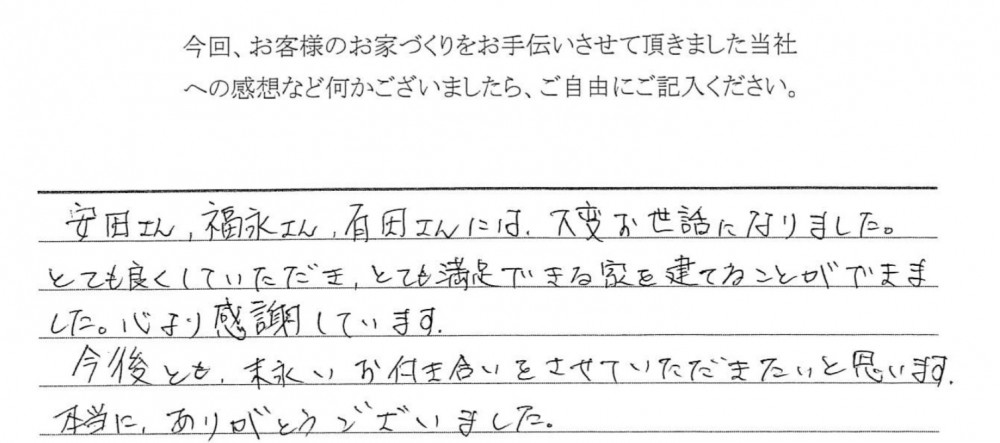 今回、お客様のお家づくりをお手伝いさせて頂きました当社
への感想など何かございましたら、ご自由にご記入ください。
安田さん,福永さん,有田さんには、大変お世話になりました。
とても良くしていただき,とても満足できる家を建てることができま
した。心より感謝しています.
今後とも、末永いお付き合いをさせていただきたいと思います.
本当に、ありがとうございました。